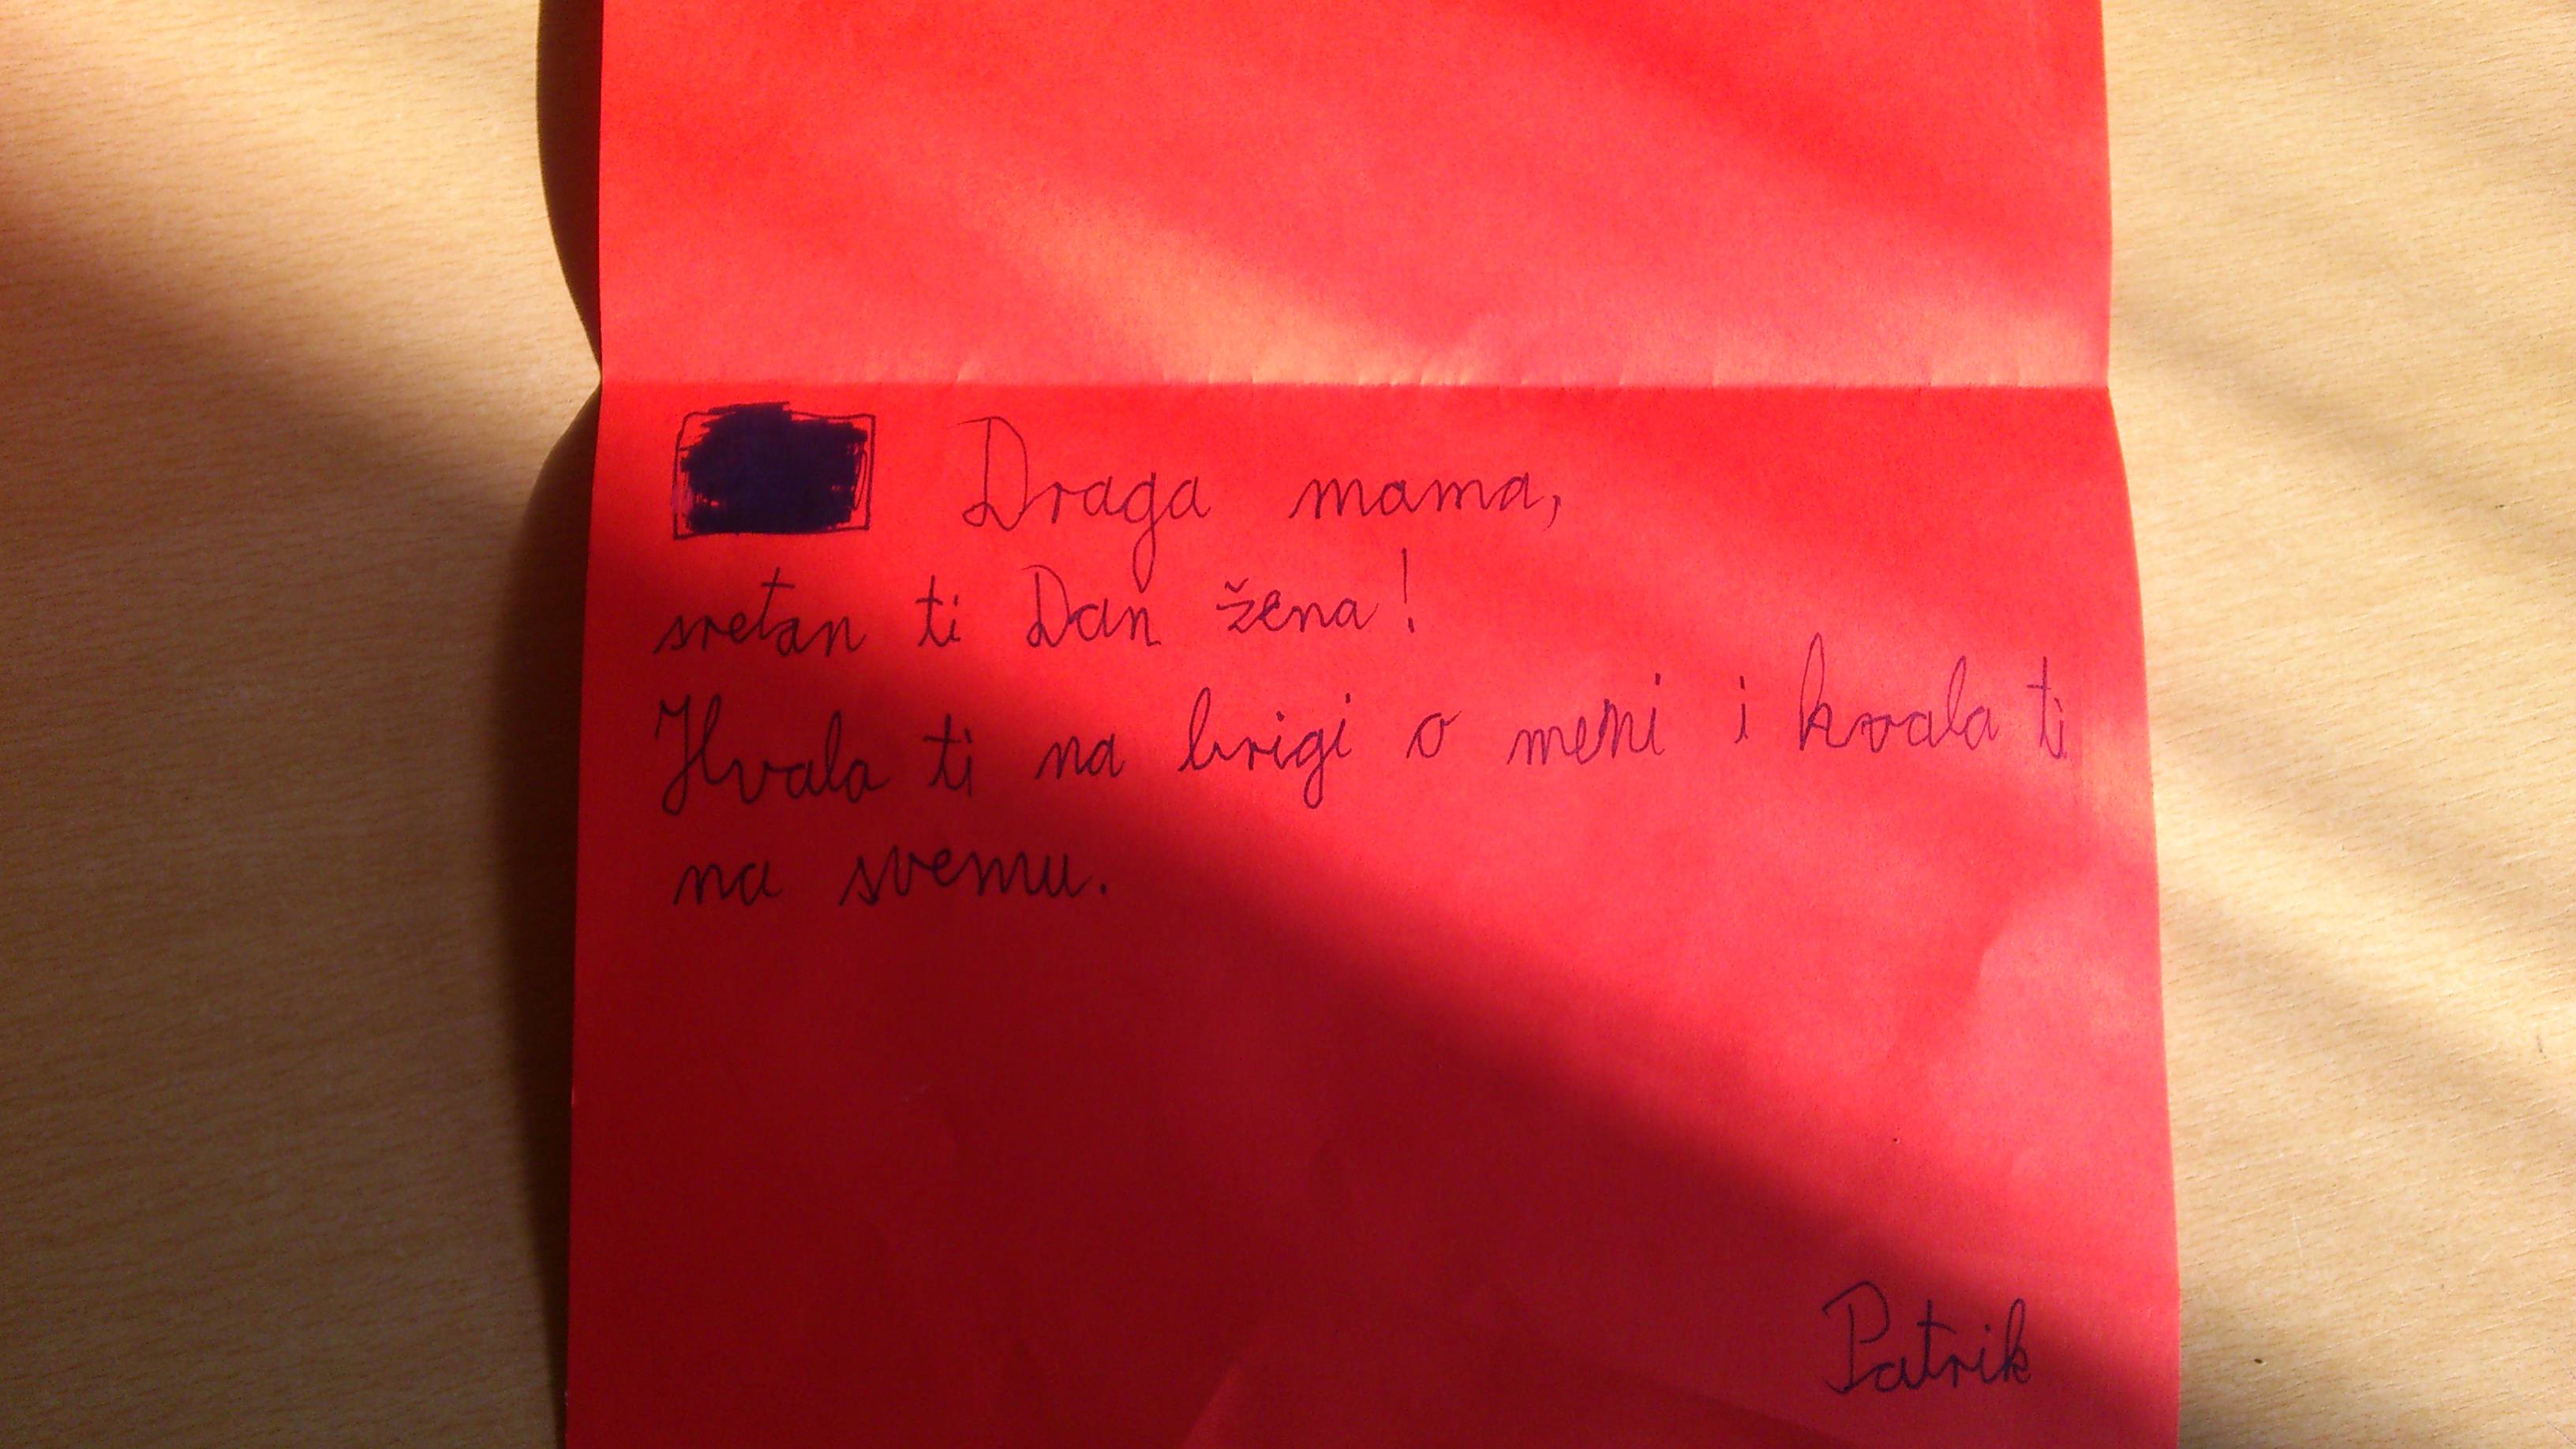 Draga mama,
sretan ti Dan žena!
Hvala ti na brigi o meni i hvala ti
na svemu.
Patrik